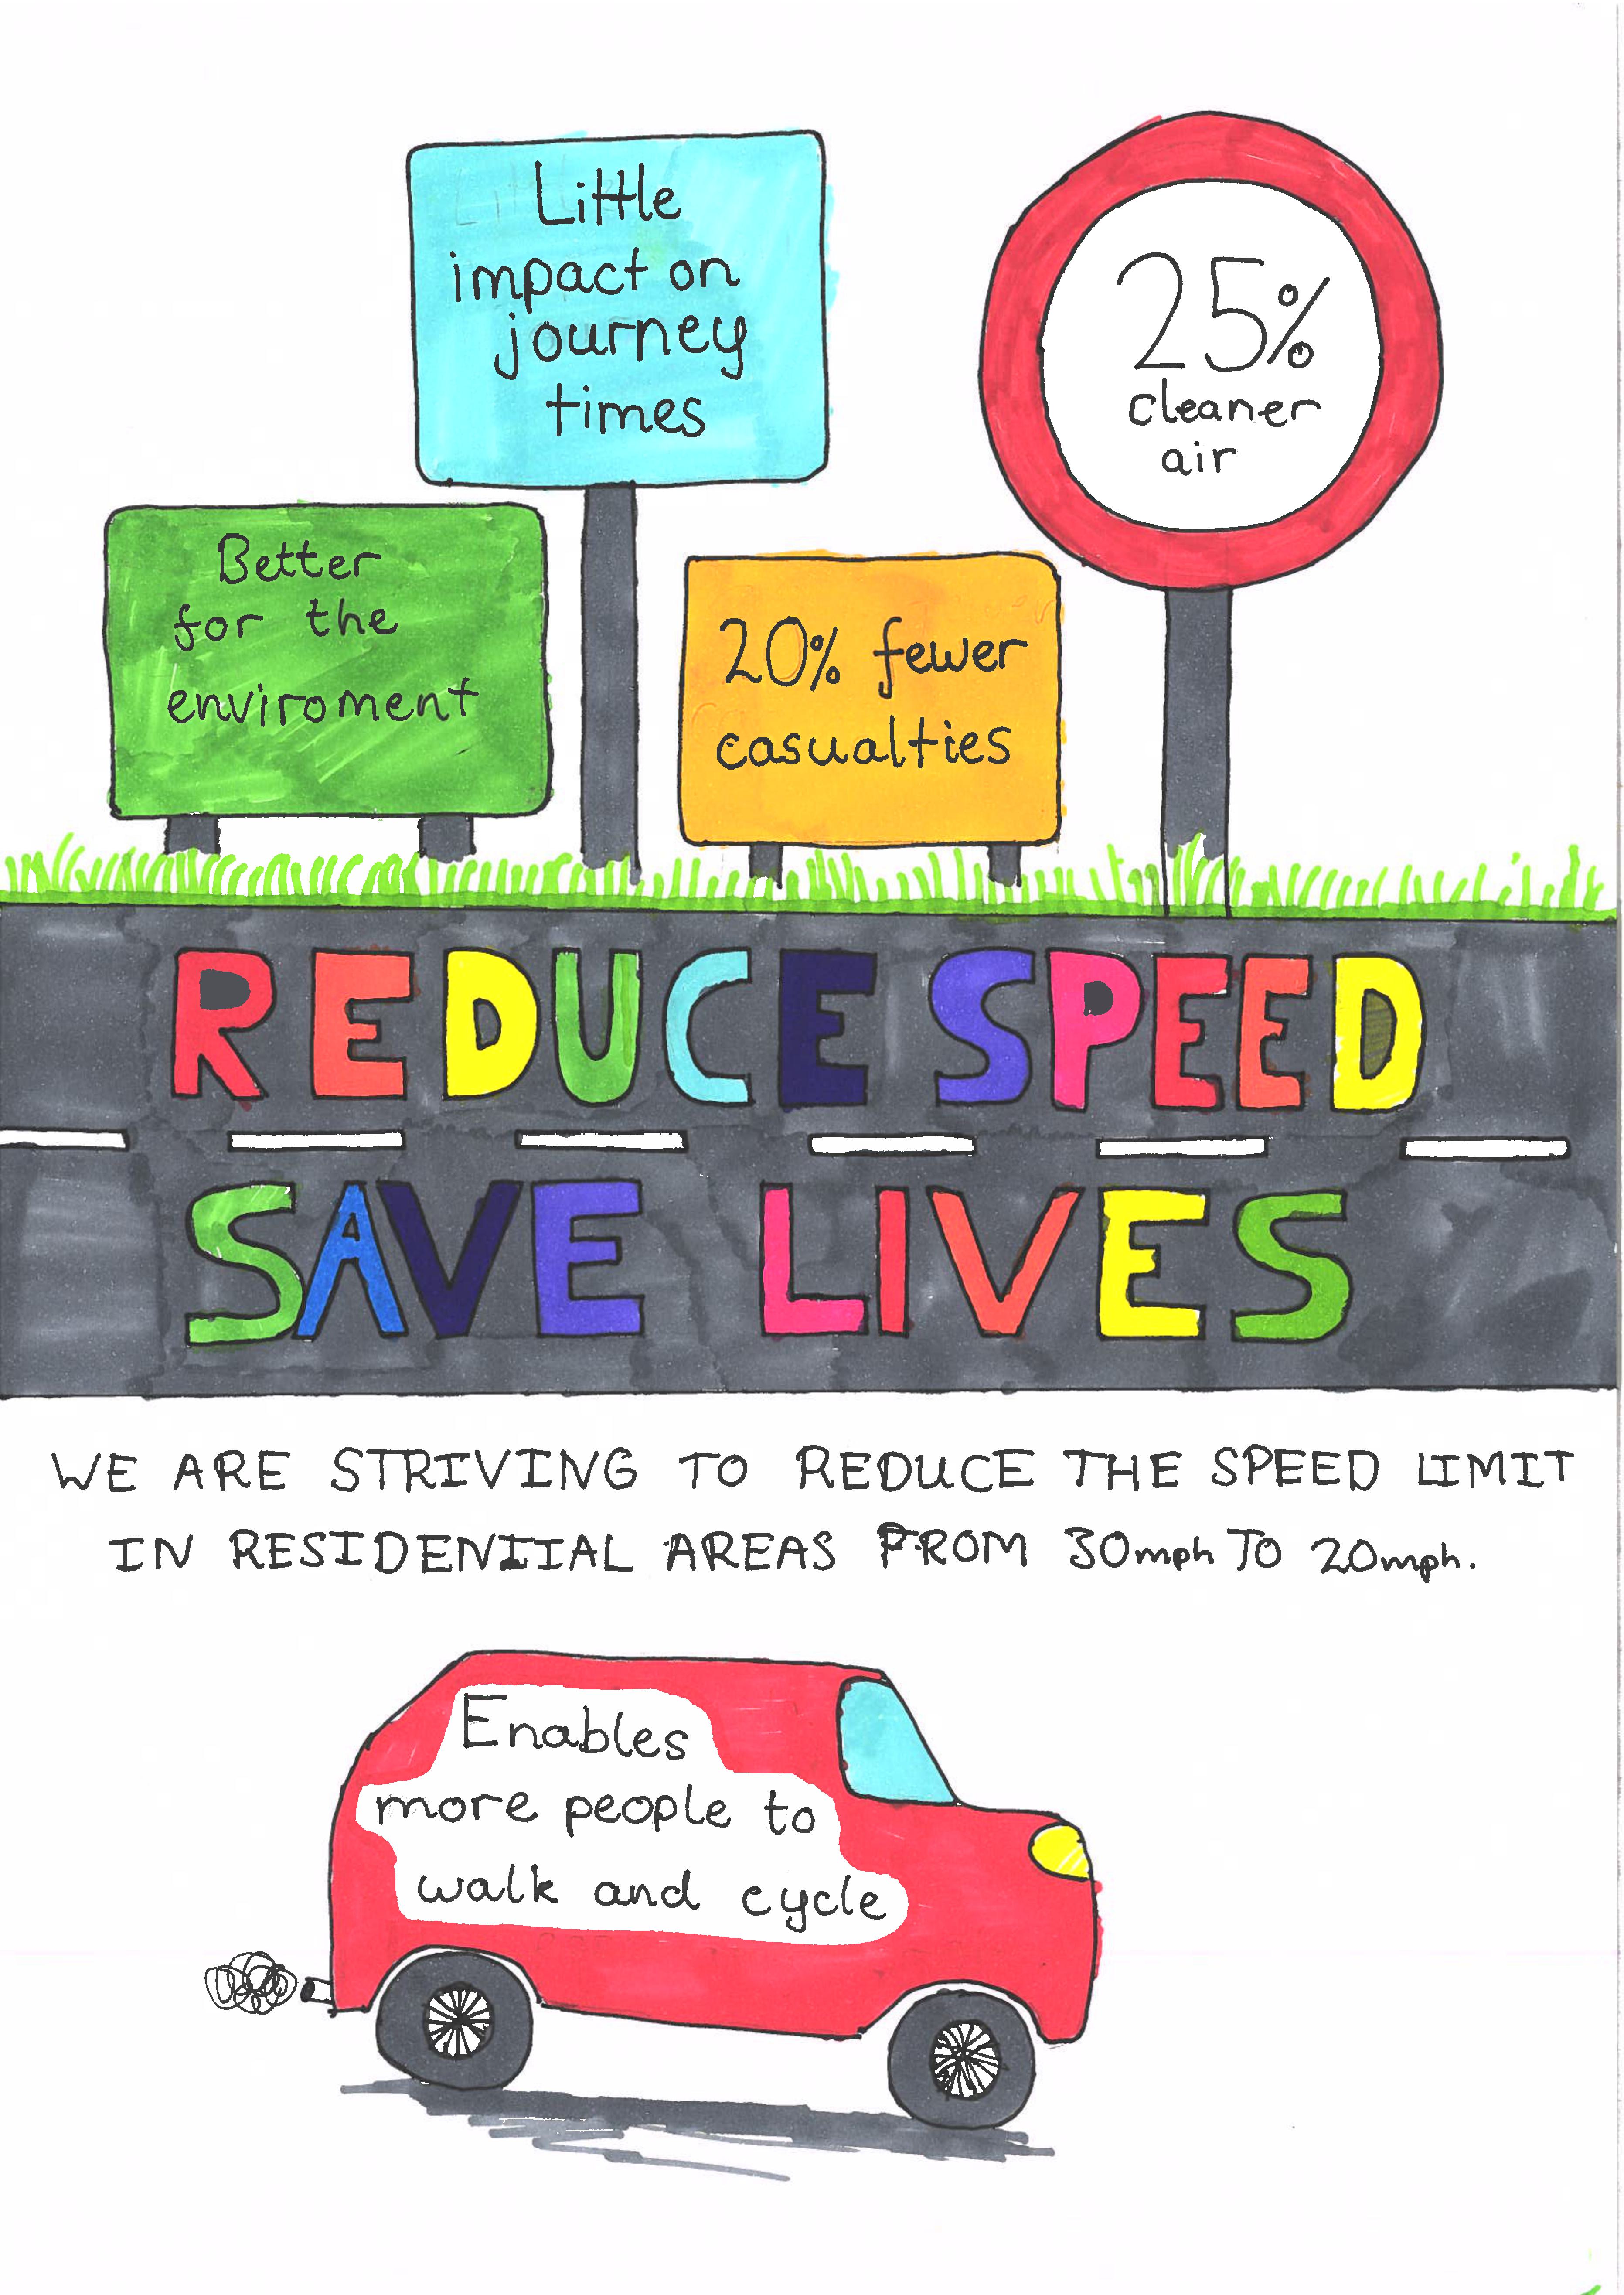 Little
impact on
journey
times
25%
cleaner
air
Better
for the
enviroment
20% fewer
casualties
REDUCE SPEED
SAVE LIVES
WE ARE STRIVING TO REDUCE THE SPEED LIMIT
IN RESIDENTIAL AREAS FROM 30mph TO 20mph.
Enables
more people to
walk and cycle